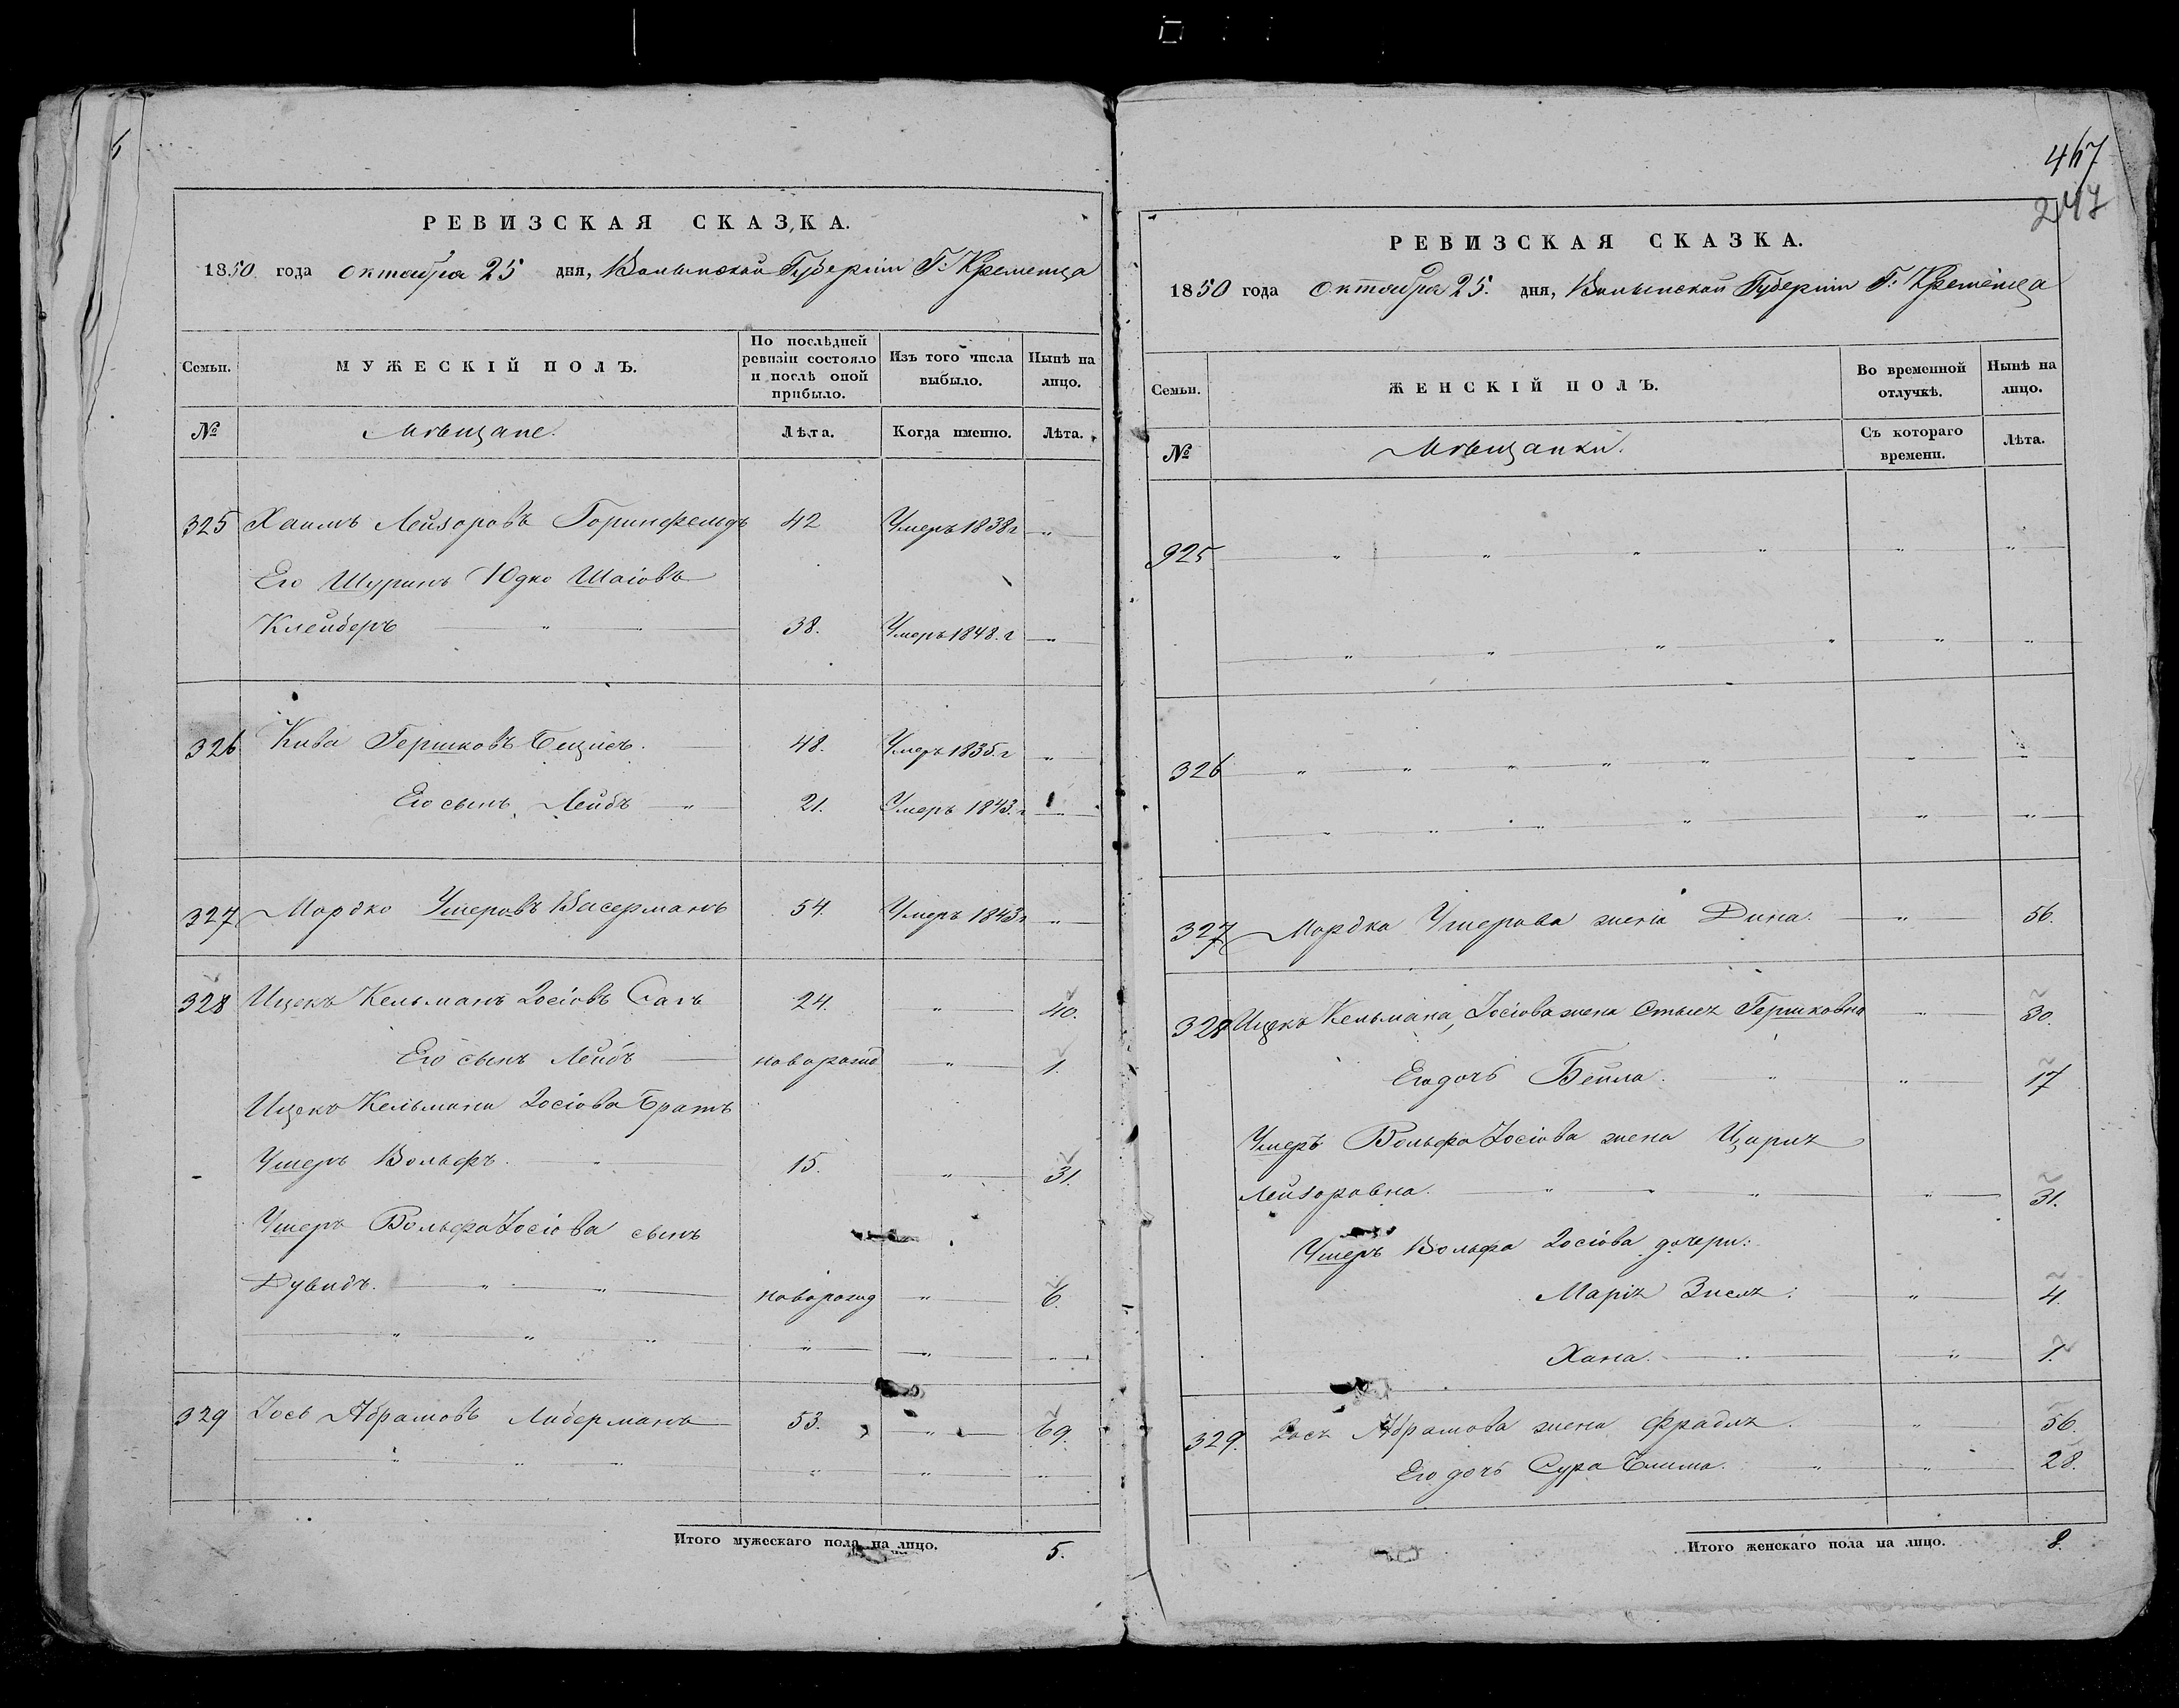 РЕВИЗСКАЯ СКАЗКА.
1850 года октября 25 дня, Волынской Губерніи Г: Кременца
Семьи. МУЖЕСКІЙ ПОЛЪ. По послѣдней ревизіи состояло и послѣ оной прибыло. Изъ того числа выбыло. Нынѣ на лицо.
№ Мѣщане. Лѣта. Когда именно. Лѣта.
325 Хаимъ Лейзоровъ Горинфельдъ 42 Умеръ 1838 г „
Его Шуринъ Юдко Шаіовъ
Клейберъ „ 38. Умеръ 1848. г „
326 Кива Гершковъ 48. Умеръ 1835. г „
Его сынъ Лейбъ „ 21. Умеръ 1843. г „
327 Мордко Ушеровъ Васерманъ 54. Умеръ 1843 г „
328 Ицекъ Кельманъ Іосіовъ 24. „ 40.
Его сынъ Лейбъ новорожд „ 1.
Ицека Кельмана Іосіова братъ
Ушеръ Вольфъ. „ 15. „ 31.
Ушеръ Вольфа Іосіова сынъ
Дувидъ. „ „ новорожд „ 6.
„ „ „ „ „ „
329 Іось Абрамовъ Либерманъ 53. „ 69.
„ „ „ „ „ „
Итого мужескаго пола на лицо. 5.
467
247
РЕВИЗСКАЯ СКАЗКА.
1850 года Октября 25. дня, Волынской Губерніи Г: Кременца
Семьи. ЖЕНСКІЙ ПОЛЪ. Во временной отлучкѣ. Нынѣ на лицо.
№ Мѣщанки. Съ котораго времени. Лѣта.
325 „ „ „ „ „ „
„ „ „ „ „ „
326 „ „ „ „ „ „ „
„ „ „ „ „ „
327 Мордка Ушерова жена Дина. „ 56.
328 Ицека Кельмана, Іосіова жена Гершковна „ 30.
Его дочь Бейла. „ „ 17
Ушеръ Вольфа Іосіова жена
Лейзоровна. „ „ „ „ 31.
Ушеръ Вольфа Іосіова дочери:
Марія Зися: „ 4.
Хана. „ „ 1.
329. Іося Абрамова жена Фрадля. „ 56.
Его дочь Сура „ „ 28.
Итого женскаго пола на лицо. 8.